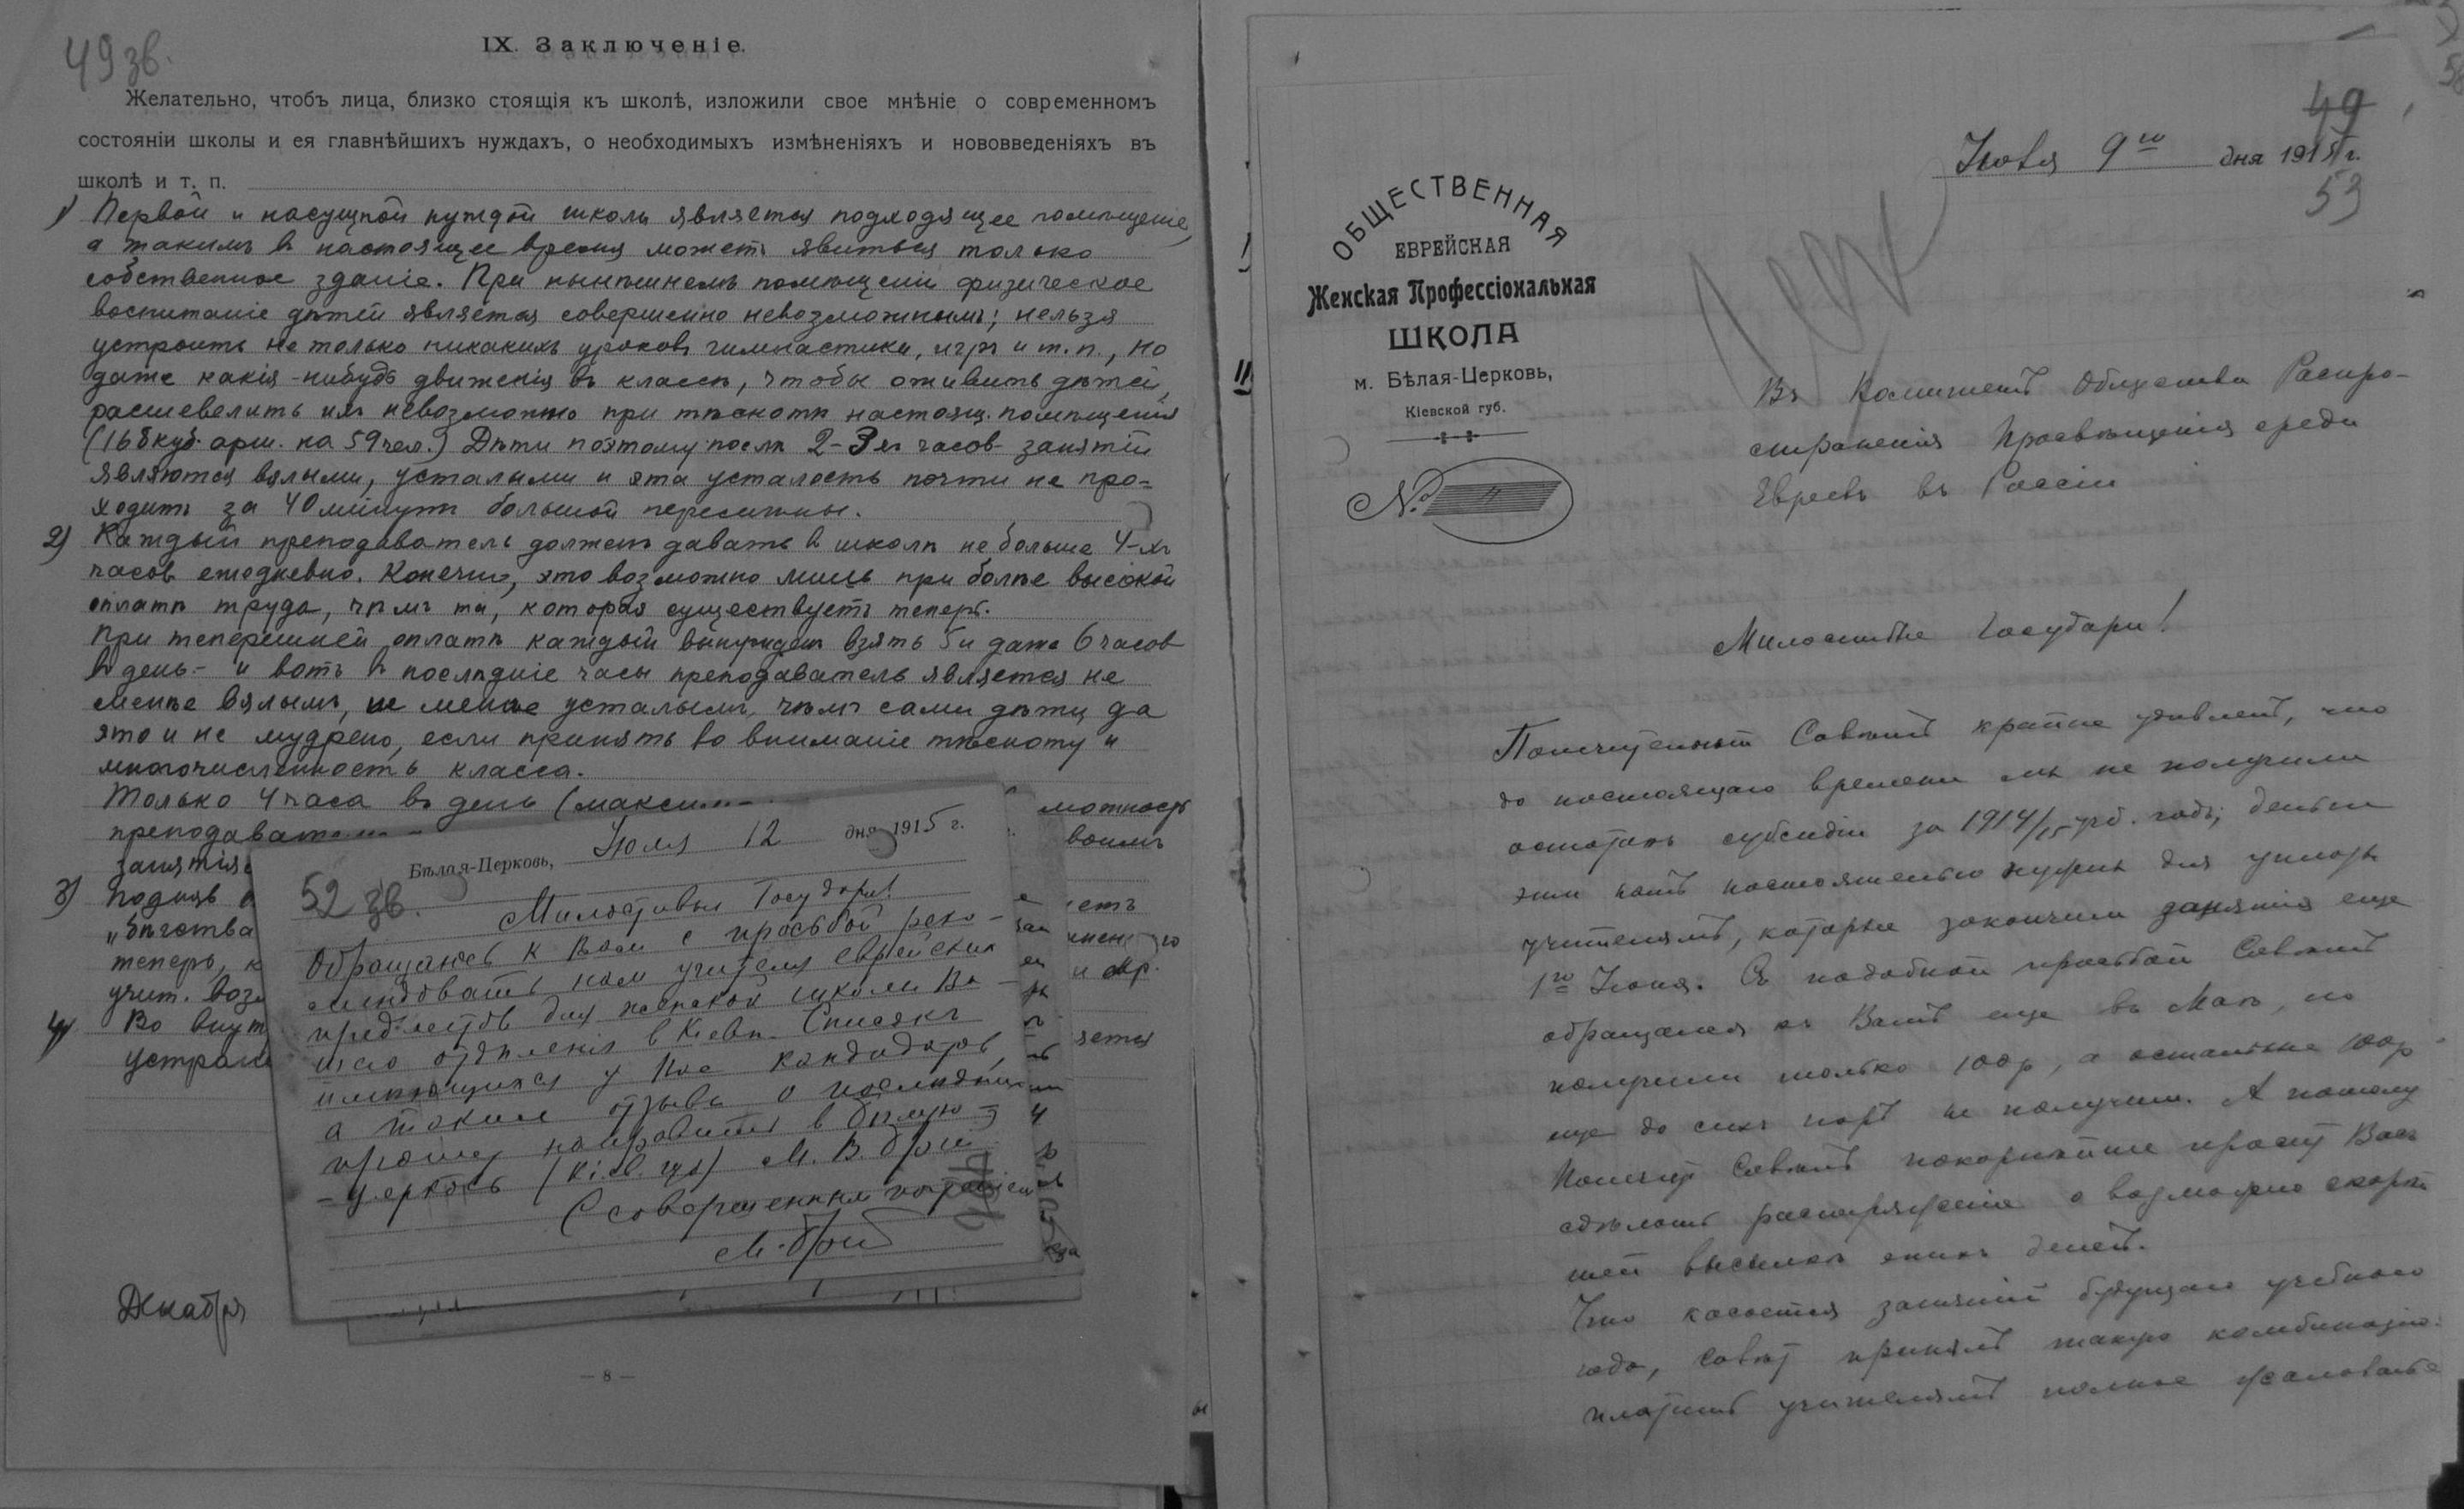 49 зв.
IX. Заключеніе.
Желательно, чтобъ лица, близко стоящія къ школѣ, изложили свое мнѣніе о современномъ
состояніи школы и ея главнѣйшихъ нуждахъ, о необходимыхъ измѣненіяхъ и нововведеніяхъ въ
школѣ и т. п.
1) Первой и насущной нуждой школы является подходящее помѣщеніе,
а такимъ в настоящее время можетъ явиться только
собственное зданіе. При нынѣшнемъ помѣщеніи физическое
воспитаніе дѣтей является совершенно невозможнымъ; нельзя
устроить не только никакихъ уроковъ гимнастики, игръ и т. п., но
даже какія-нибудь движенія въ классѣ, чтобы оживить дѣтей,
расшевелить ихъ невозможно при тѣснотѣ настоящ. помѣщенія
(168 куб. арш. на 59 чел.) Дѣти поэтому послѣ 2-3хъ часов занятій
являются вялыми, усталыми и эта усталость почти не про-
ходитъ за 40 минутъ большой перемѣны.
2) Каждый преподаватель долженъ давать в школѣ не больше 4-хъ
часов ежедневно. Конечно, это возможно лишь при болѣе высокой
оплатѣ труда, чѣмъ та, которая существуетъ теперь.
При теперешней оплатѣ каждый вынужден взять 5 и даже 6 часов
в день - и вотъ в послѣдніе часы преподаватель является не
менѣе вялымъ, не менѣе усталымъ, чѣмъ сами дѣти да
это и не мудрено, если принять во вниманіе тѣсноту и
многочисленность класса.
Только 4 часа въ день
можность
преподават
воимъ
занятія
3) Подняв
етъ
„бѣгства
теперь, к
и др.
учит. воз
4) Во внут
яется
устран
Декабря
— 8 —
52 зв.
Бѣлая-Церковь, Юля 12 дня 1915 г.
Милостивые Государи!
Обращаюсь к Вам с просьбой реко-
мендовать нам учителя еврейских
предметов для женской школы Ва-
шего отдѣленія в Кіевѣ. Список
имѣющихся у Вас кандидатов,
а также отзывы о послѣдних
прошу направить в Бѣлую-
-Церковь (Кіев. губ) М. В. Брой
С совершенным почтеніем
М. Брой
49
53
Іюня 9го дня 1915 г.
ОБЩЕСТВЕННАЯ
ЕВРЕЙСКАЯ
Женская Профессіональная
ШКОЛА
м. Бѣлая-Церковь,
Кіевской губ.
№
Въ Комитетъ Общества Распро-
страненія Просвѣщенія среди
Евреевъ въ Россіи
Милостивые Государи!
Попечительный Совѣтъ крайне удивленъ, что
до настоящаго времени мы не получили
остатокъ субсидіи за 1914/15 уч. годъ; деньги
эти намъ настоятельно нужны для уплаты
учителямъ, которые закончили занятія еще
1го Іюня. Съ подобной просьбой Совѣтъ
обращался къ Вамъ еще въ Маѣ, но
получили только 100р, а остальные 100р
еще до сихъ поръ не получили. А потому
Попечит Совѣтъ покорнѣйше проситъ Васъ
сдѣлать распоряженіе о возможно скорѣй
шей высылкѣ этихъ денегъ.
Что касается занятій будущаго учебнаго
года, Совѣтъ принялъ такую комбинацію:
платить учителямъ полное жалованье